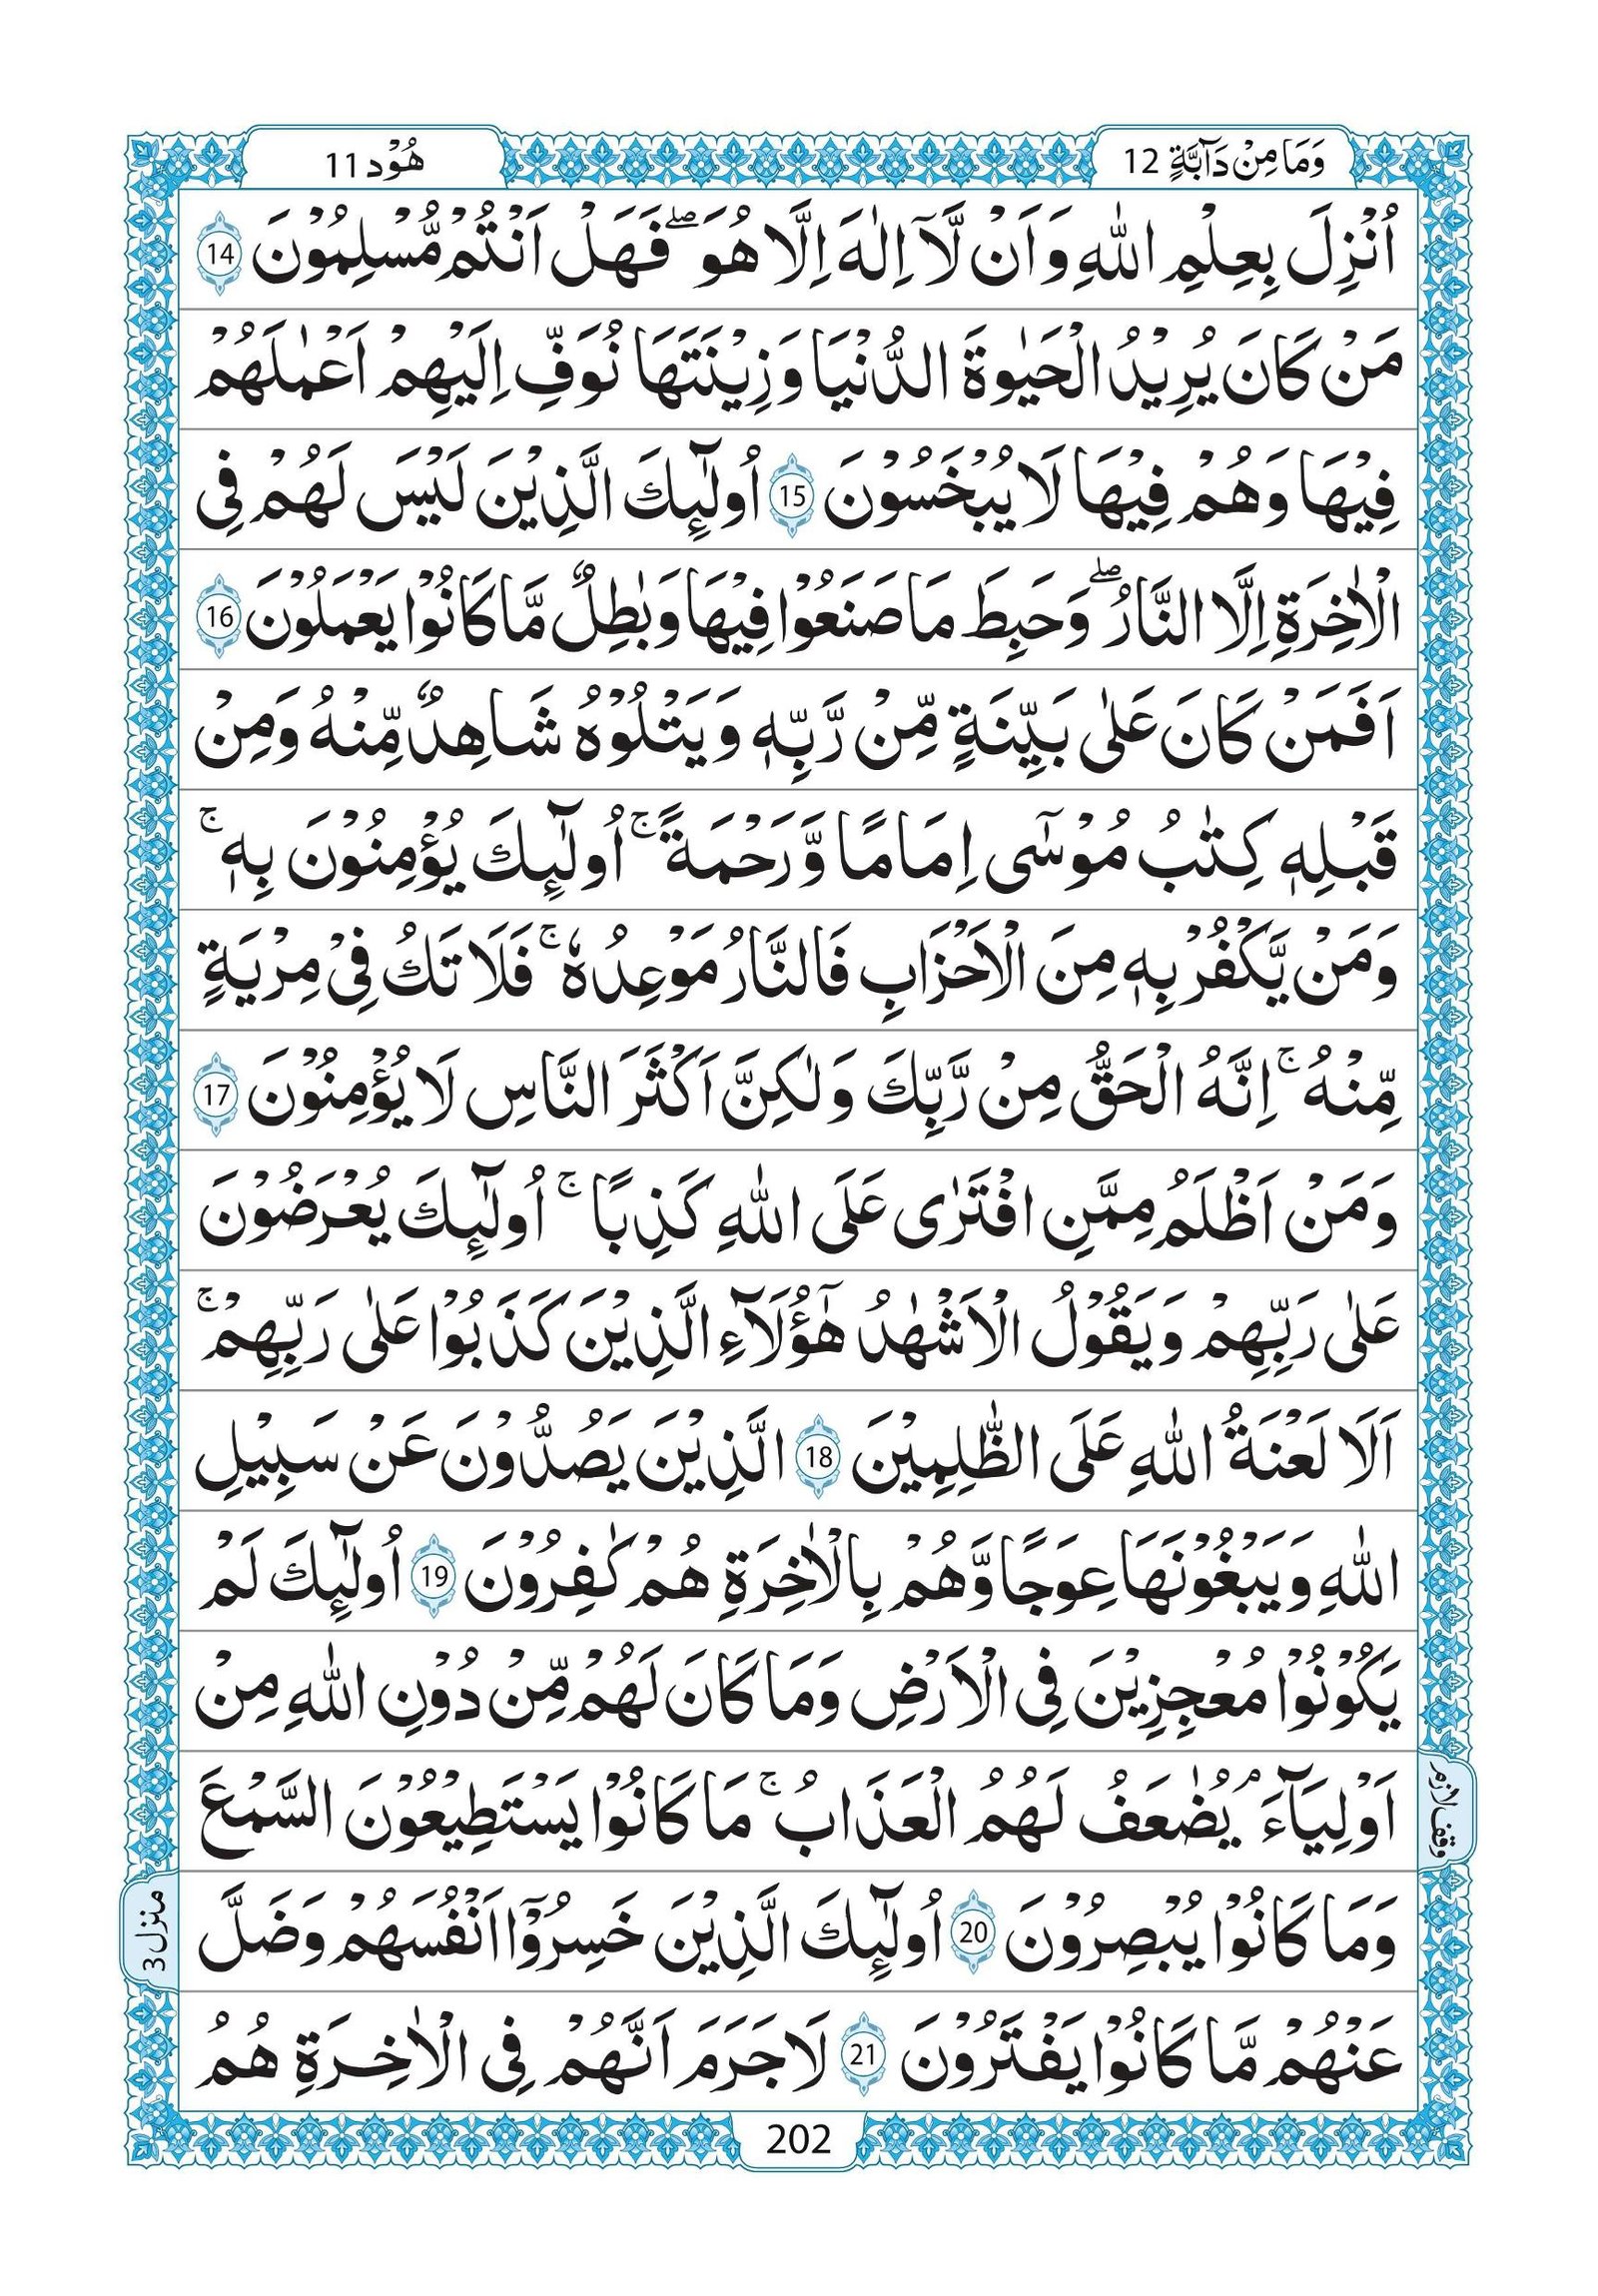 وَمَا مِنْ دَآبَّةٍ 12
هُوْد 11
اُنْزِلَ بِعِلْمِ اللّٰهِ وَ اَنْ لَّاۤ اِلٰهَ اِلَّا هُوَ ۖ فَهَلْ اَنْتُمْ مُّسْلِمُوْنَ 14
مَنْ كَانَ يُرِيْدُ الْحَيٰوةَ الدُّنْيَا وَ زِيْنَتَهَا نُوَفِّ اِلَيْهِمْ اَعْمٰلَهُمْ
فِيْهَا وَ هُمْ فِيْهَا لَا يُبْخَسُوْنَ 15 اُولٰٓئِكَ الَّذِيْنَ لَيْسَ لَهُمْ فِى
الْاٰخِرَةِ اِلَّا النَّارُ ۖ وَ حَبِطَ مَا صَنَعُوْا فِيْهَا وَ بٰطِلٌ مَّا كَانُوْا يَعْمَلُوْنَ 16
اَفَمَنْ كَانَ عَلٰى بَيِّنَةٍ مِّنْ رَّبِّهٖ وَ يَتْلُوْهُ شَاهِدٌ مِّنْهُ وَ مِنْ
قَبْلِهٖ كِتٰبُ مُوْسٰٓى اِمَامًا وَّ رَحْمَةً ۚ اُولٰٓئِكَ يُؤْمِنُوْنَ بِهٖ ۚ
وَ مَنْ يَّكْفُرْ بِهٖ مِنَ الْاَحْزَابِ فَالنَّارُ مَوْعِدُهٗ ۚ فَلَا تَكُ فِىْ مِرْيَةٍ
مِّنْهُ ۚ اِنَّهُ الْحَقُّ مِنْ رَّبِّكَ وَ لٰكِنَّ اَكْثَرَ النَّاسِ لَا يُؤْمِنُوْنَ 17
وَ مَنْ اَظْلَمُ مِمَّنِ افْتَرٰى عَلَى اللّٰهِ كَذِبًا ۚ اُولٰٓئِكَ يُعْرَضُوْنَ
عَلٰى رَبِّهِمْ وَ يَقُوْلُ الْاَشْهٰدُ هٰٓؤُلَآءِ الَّذِيْنَ كَذَبُوْا عَلٰى رَبِّهِمْ ۚ
اَلَا لَعْنَةُ اللّٰهِ عَلَى الظّٰلِمِيْنَ 18 الَّذِيْنَ يَصُدُّوْنَ عَنْ سَبِيْلِ
اللّٰهِ وَ يَبْغُوْنَهَا عِوَجًا وَّ هُمْ بِالْاٰخِرَةِ هُمْ كٰفِرُوْنَ 19 اُولٰٓئِكَ لَمْ
يَكُوْنُوْا مُعْجِزِيْنَ فِى الْاَرْضِ وَ مَا كَانَ لَهُمْ مِّنْ دُوْنِ اللّٰهِ مِنْ
اَوْلِيَآءَ ۘ يُضٰعَفُ لَهُمُ الْعَذَابُ ۚ مَا كَانُوْا يَسْتَطِيْعُوْنَ السَّمْعَ
وقف لازم
وَ مَا كَانُوْا يُبْصِرُوْنَ 20 اُولٰٓئِكَ الَّذِيْنَ خَسِرُوْۤا اَنْفُسَهُمْ وَ ضَلَّ
منزل 3
عَنْهُمْ مَّا كَانُوْا يَفْتَرُوْنَ 21 لَا جَرَمَ اَنَّهُمْ فِى الْاٰخِرَةِ هُمُ
202